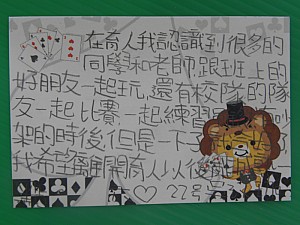 在育人我認識到很多的
同學和老師跟班上的
好朋友一起玩,還有校隊的隊
友一起比賽一起練習 有吵
架的時後,但是一下子
我希望離開育人以後
22号